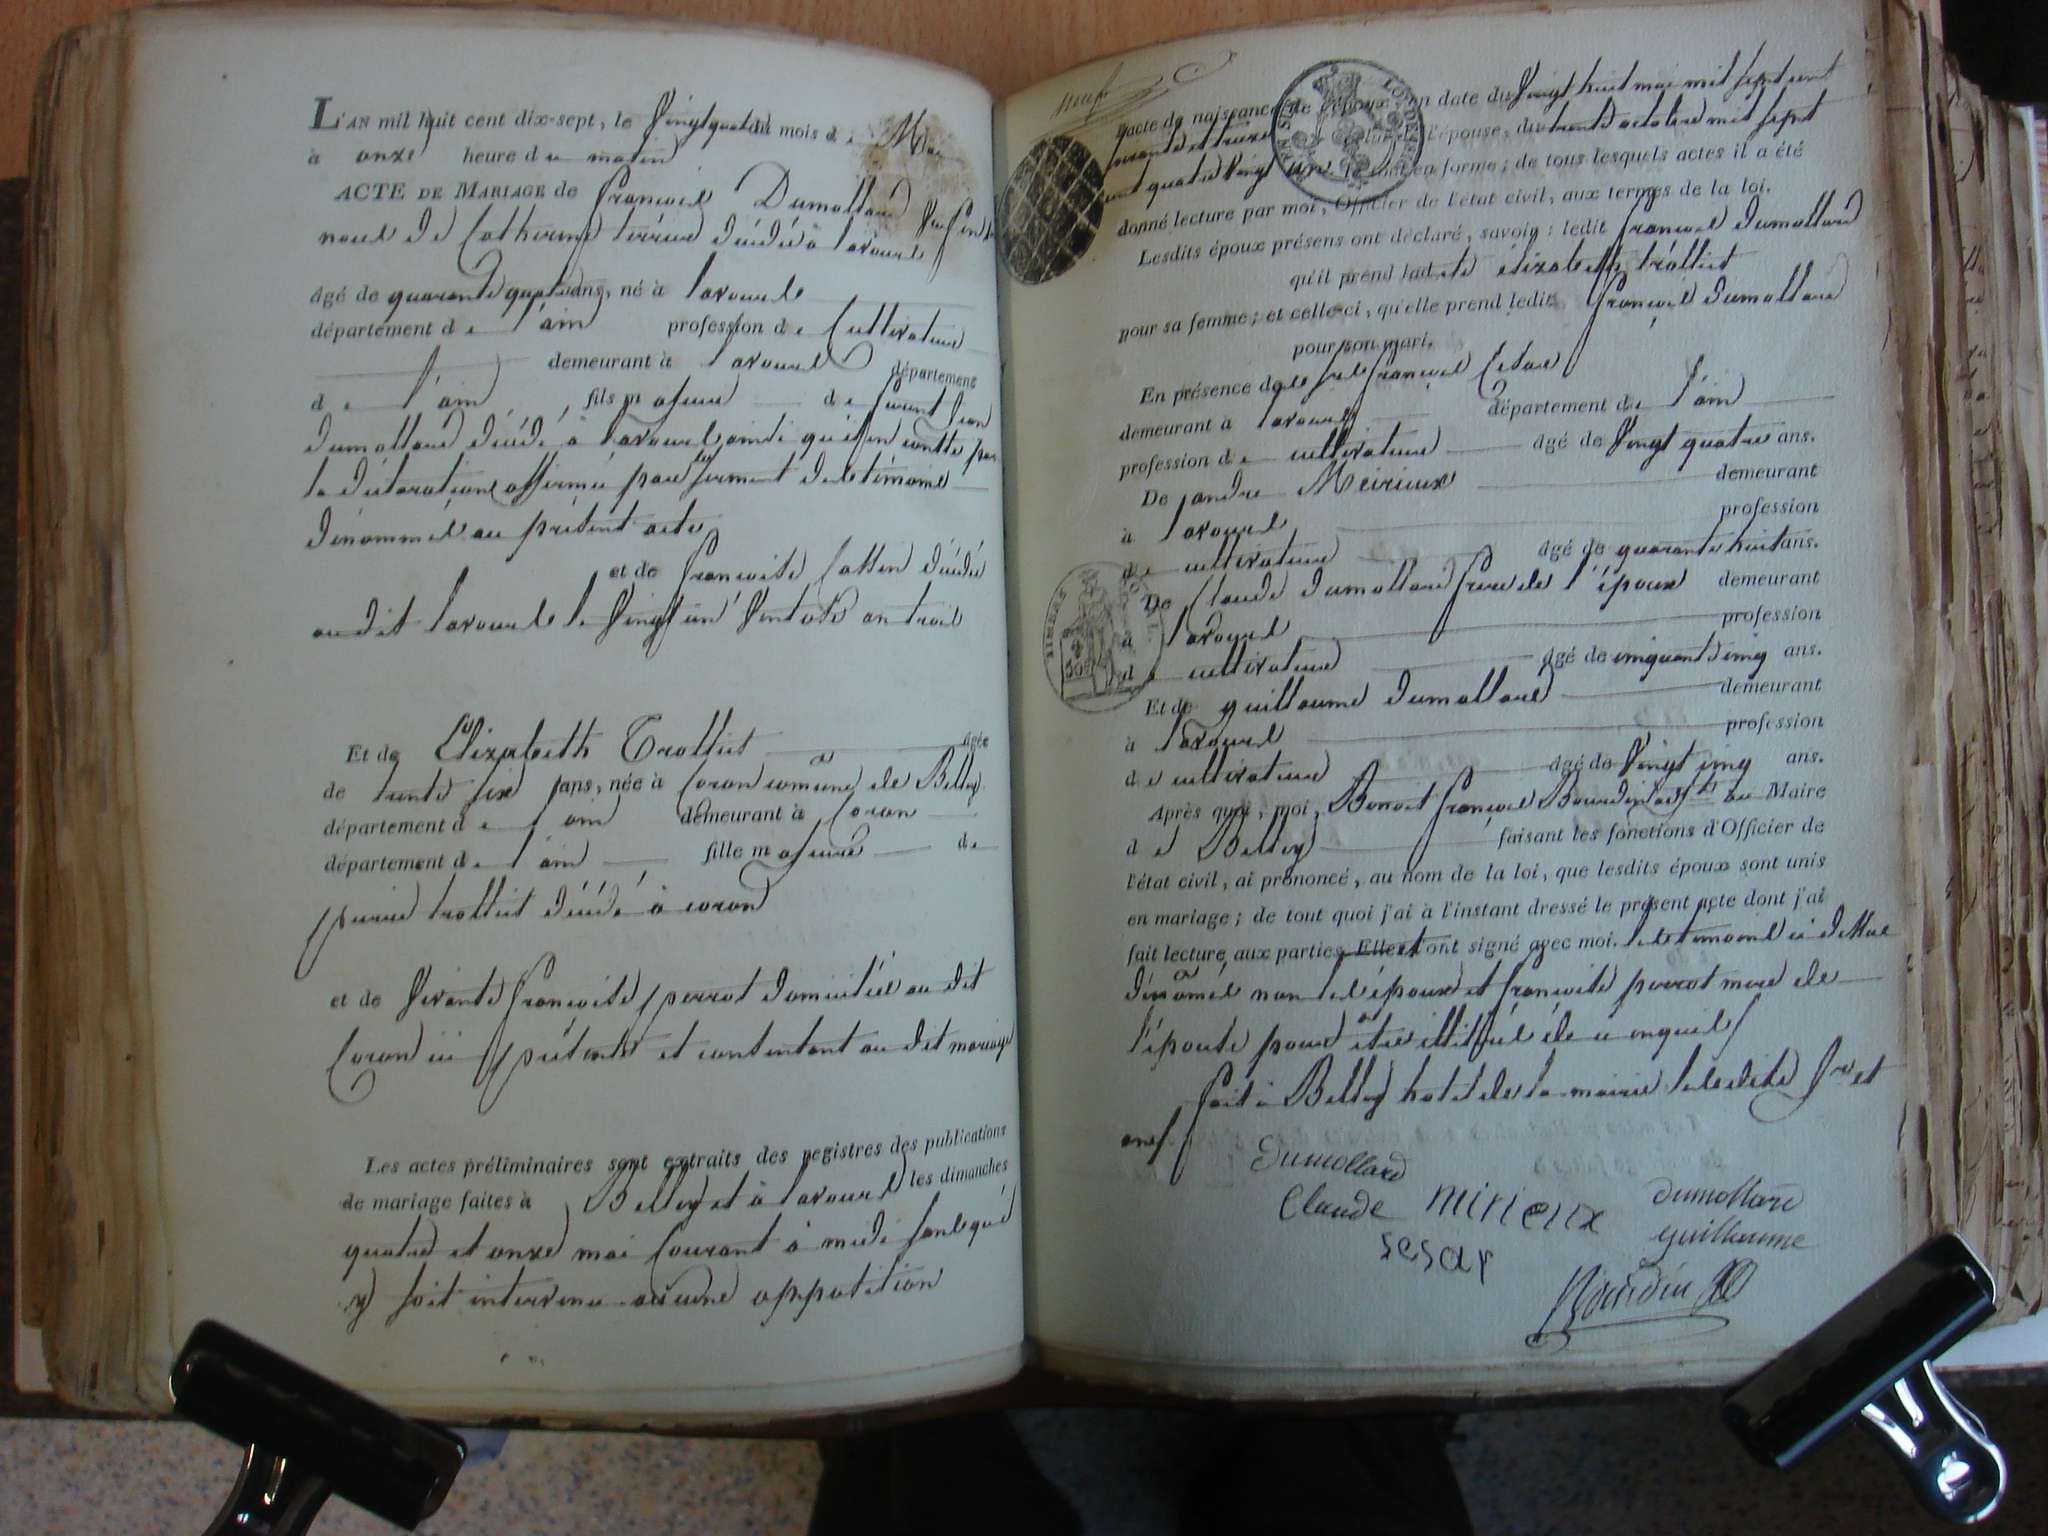 L'AN mil huit cent dix-sept, le vingt quatre du mois de Mai
à onze heure du matin
ACTE DE MARIAGE de françois Dumollard veuf en
noces de Catherine terrier décédée à lavours
âgé de quarante quatre ans, né à lavours
département de l'ain profession de Cultivateur
demeurant à lavours département
de l'ain fils majeur de
dumollard décédé à lavours ainsi qu'il en conste par
la déclaration affirmée par les serment des témoins
dénommés au présent acte
et de françoise Cattin décédée
au dit lavours le vingt un ventose an trois
Et de Elizabeth Trolliet âgée
de trente six ans, née à Coron comune de Belley
département de l'ain demeurant à Coron
département de l'ain fille majeure de
pierre trolliet décédé à coron
et de vivante françoise perrot domiciliée au dit
Coron ici présente et consentant au dit mariage
Les actes préliminaires sont extraits des registres des publications
de mariage faites à Belley et à lavours les dimanches
quatre et onze mai Courant à midi sans que
y soit intervenu aucune oppotition
neuf
l'acte de naissance de l'époux en date du vingt huit mai mil sept cent
l'épouse, du trente octobre mil sept
cent quatre vingt un le tout en forme; de tous lesquels actes il a été
donné lecture par moi, Officier de l'état civil, aux termes de la loi.
Lesdits époux présens ont déclaré, savoir: ledit françois dumollard
qu'il prend ladite élizabeth trolliet
pour sa femme; et celle-ci, qu'elle prend ledit françois dumollard
pour son mari.
En présence de françois Cesar
demeurant à lavours département de l'ain
profession de cultivateur âgé de vingt quatre ans.
De andré Meirieux demeurant
à lavours profession
de cultivateur âgé de quarante huit ans.
De Claude dumollard frere de l'époux demeurant
à lavours profession
de cultivateur âgé de cinquante cinq ans.
Et de guillaume dumollard demeurant
à lavours profession
de cultivateur âgé de vingt cinq ans.
Après quoi, moi, Benoit françois Bourdin adjt au Maire
de Belley faisant les fonctions d'Officier de
l'état civil, ai prononcé, au nom de la loi, que lesdits époux sont unis
en mariage; de tout quoi j'ai à l'instant dressé le présent acte dont j'ai
fait lecture aux parties Elles et ont signé avec moi. les temoins ci dessus
dénomés non les époux et françoise perrot mere de
l'épouse pour être illitérés de ce enquis
fait à Belley hotel de la mairie lesdits jr et
an
Dumollard
Claude mirieux dumollard
sesar guillaume
Bourdin